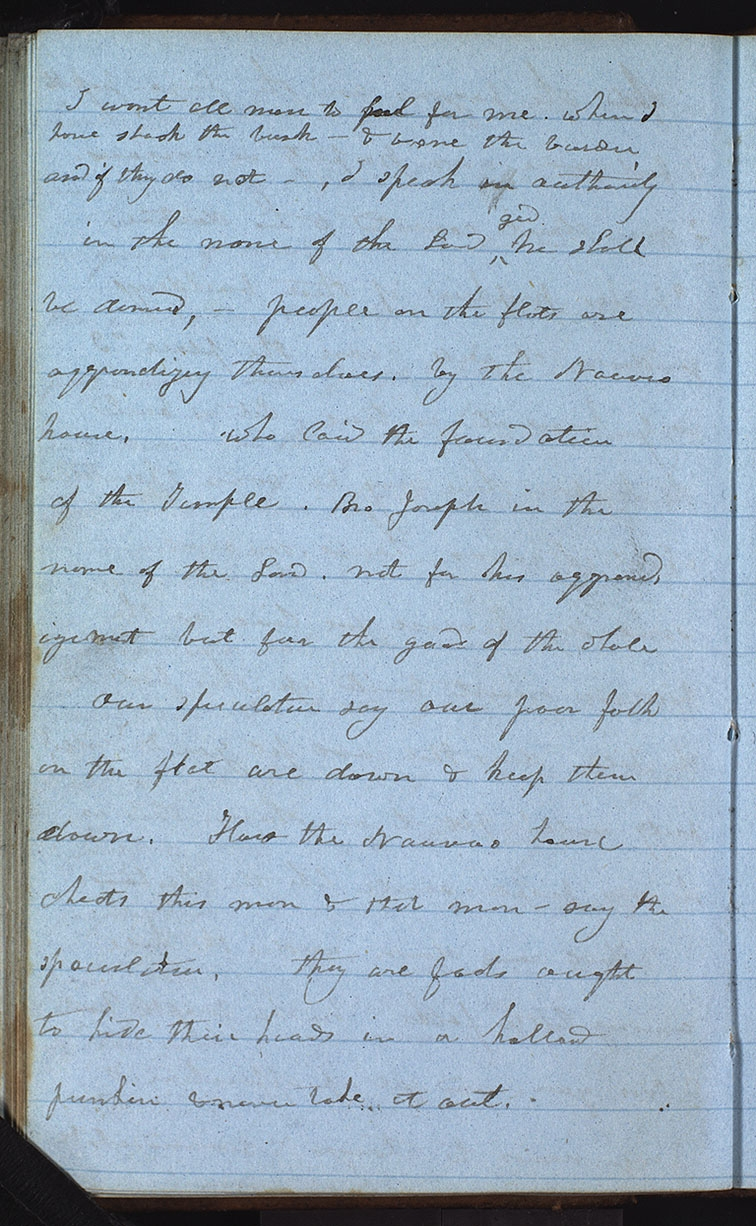 I want all men to feel for me. when I
have shook the bush – & bore the burden
and if they do not –, I speak in authority
in the name of the Lord god he shall
be damned, – people on the flats are
aggrandizing themselves. by the Nauvoo
house. who laid the foundation
of the Temple. Bro Joseph in the
name of the Lord. not for his aggrand
izement but for the good of the whole
our speculators say our poor folk
on the flat are down & keep them
down. How the Nauvoo house
cheats this man & that man – say the
speculators. they are fools ought
to hide their heads in a hollow
punkin & never take it out.